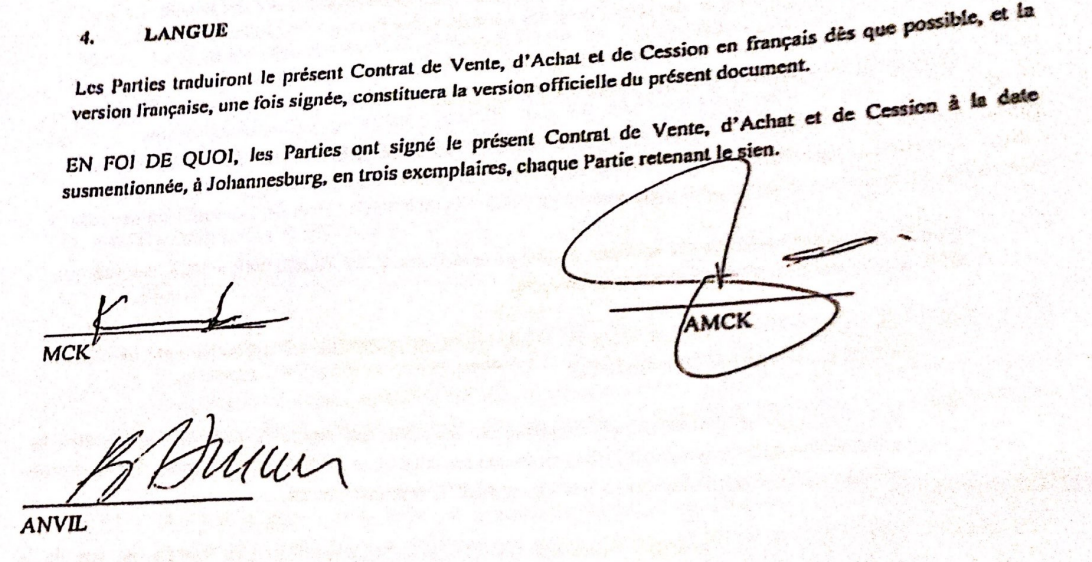 4. LANGUE
Les Parties traduiront le présent Contrat de Vente, d'Achat et de Cession en français dès que possible, et la
version française, une fois signée, constituera la version officielle du présent document.
EN FOI DE QUOI, les Parties ont signé le présent Contrat de Vente, d'Achat et de Cession à la date
susmentionnée, à Johannesburg, en trois exemplaires, chaque Partie retenant le sien.
AMCK
MCK
ANVIL